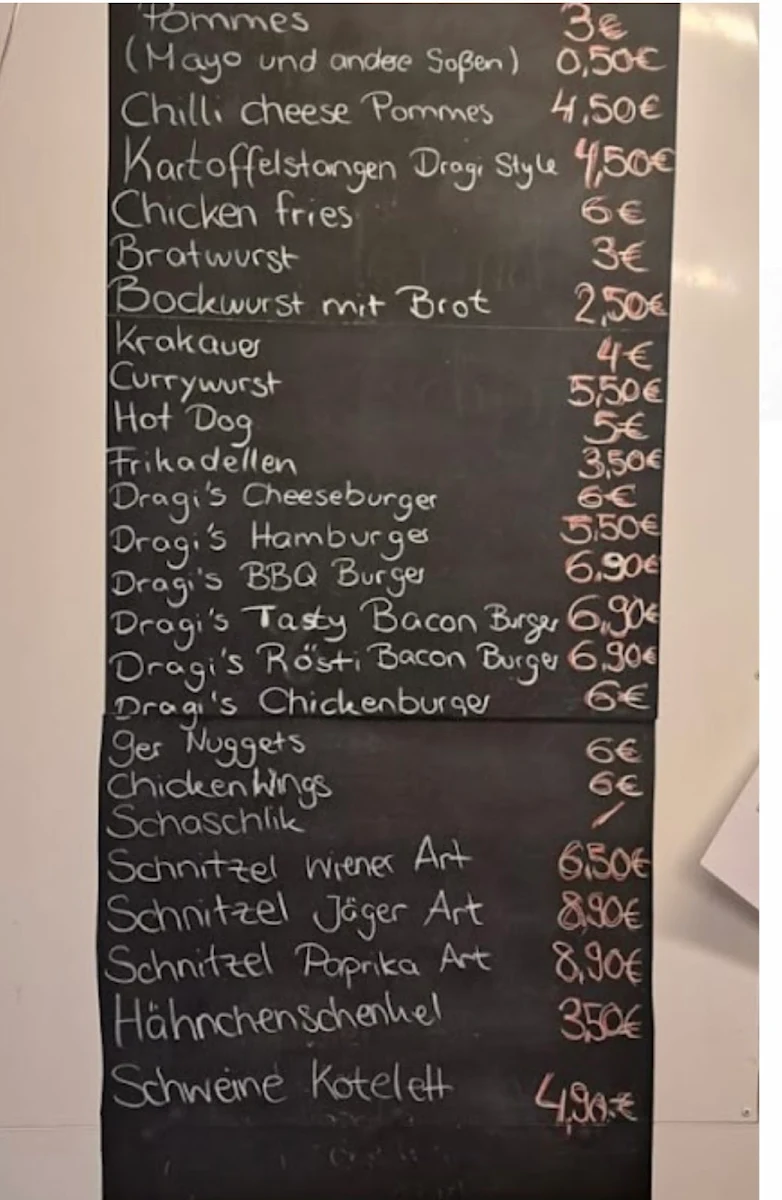 Pommes 3€
(Mayo und andere Soßen) 0,50€
Chilli cheese Pommes 4,50€
Kartoffelstangen Dragi Style 4,50€
Chicken fries 6€
Bratwurst 3€
Bockwurst mit Brot 2,50€
Krakauer 4€
Currywurst 5,50€
Hot Dog 5€
Frikadellen 3,50€
Dragi's Cheeseburger 6€
Dragi's Hamburger 5,50€
Dragi's BBQ Burger 6,90€
Dragi's Tasty Bacon Burger 6,90€
Dragi's Rösti Bacon Burger 6,90€
Dragi's Chickenburger 6€
9er Nuggets 6€
Chicken Wings 6€
Schaschlik /
Schnitzel Wiener Art 6,50€
Schnitzel Jäger Art 8,90€
Schnitzel Paprika Art 8,90€
Hähnchenschenkel 3,50€
Schweine Kotelett 4,90€